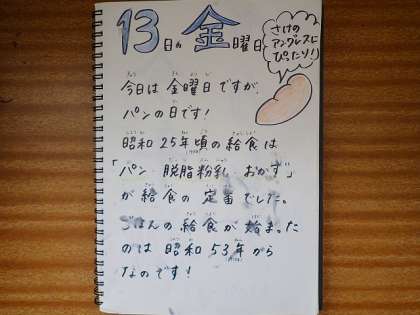 13日の金曜日
さけの
アングレスに
ぴったり!
今日は金曜日ですが、
パンの日です!
昭和25年頃の給食は
「パン 脱脂粉乳 おかず」
が給食の定番でした。
ごはんの給食が始まった
のは昭和53年から
なのです!